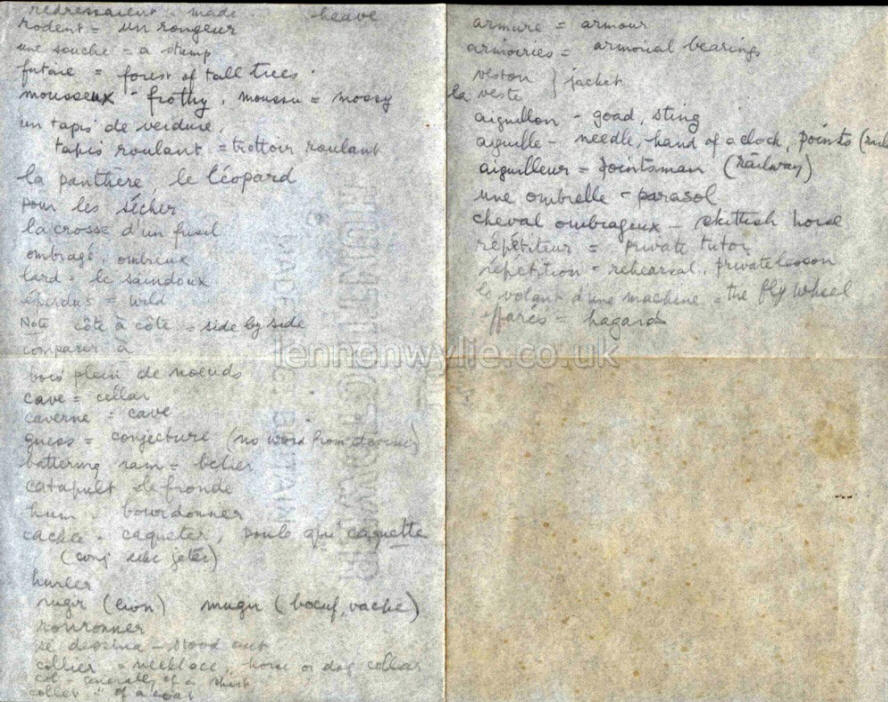 redressaient = made heave
rodent = un rongeur
une souche = a stump
futaie = forest of tall trees
mousseux - frothy, moussu = mossy
un tapis de verdure,
tapis roulant = trottoir roulant
la panthère, le léopard
pour les sécher
la crosse d'un fusil
ombragé, ombreux
lard - le saindoux
éperdus = wild
Note côte à côte = side by side
comparer à
bois plein de noeuds
cave = cellar
caverne = cave
guess = conjecture (no word from deviner)
battering ram = belier
catapult de fronde
hum - bourdonner
cackle - caqueter, poule qui caquette
(conj like jeter)
hurler
rugir (lion) mugir (boeuf, vache)
ronronner
se dessina - stood out
collier = necklace, horse or dog collar
col - generally of a shirt
collet " of a coat
armure = armour
armoiries = armorial bearings
veston } jacket
la veste
aiguillon - goad, sting
aiguille - needle, hand of a clock, points
aiguilleur = pointsman (railway)
une ombrelle - parasol
cheval ombrageux - skittish horse
répétiteur = private tutor
répétition = rehearsal, private lesson
le volant d'une machine = the fly wheel
effarés = hagards
HUNTINGTOWER
MADE IN GT. BRITAIN
lennonwylie.co.uk